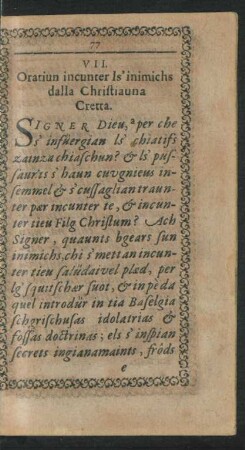 77
VII.
Oratiun incunter ls' inimichs
dalla Christiauna
Cretta.
SIGNER Dieu, ² per che
s' infüergian ls' chiatifs
zainza chiaschun? & ls' pus-
saunts s' haun cuvgnieus in-
semmel & s' cussagliantraun-
ter pær incunter te, & incun-
ter tieu Filg Christum? Ach
Signer, quaunts bgears sun
inimichs, chi s' mettan incun-
ter tieu salüdaivel plæd, per
lg' squitschær suot, & in pè da
quel introdür in tia Baselgia
schgrischusas idolatrias &
fossas doctrinas; els s' inspian
secrets ingianamaints, fróds
e